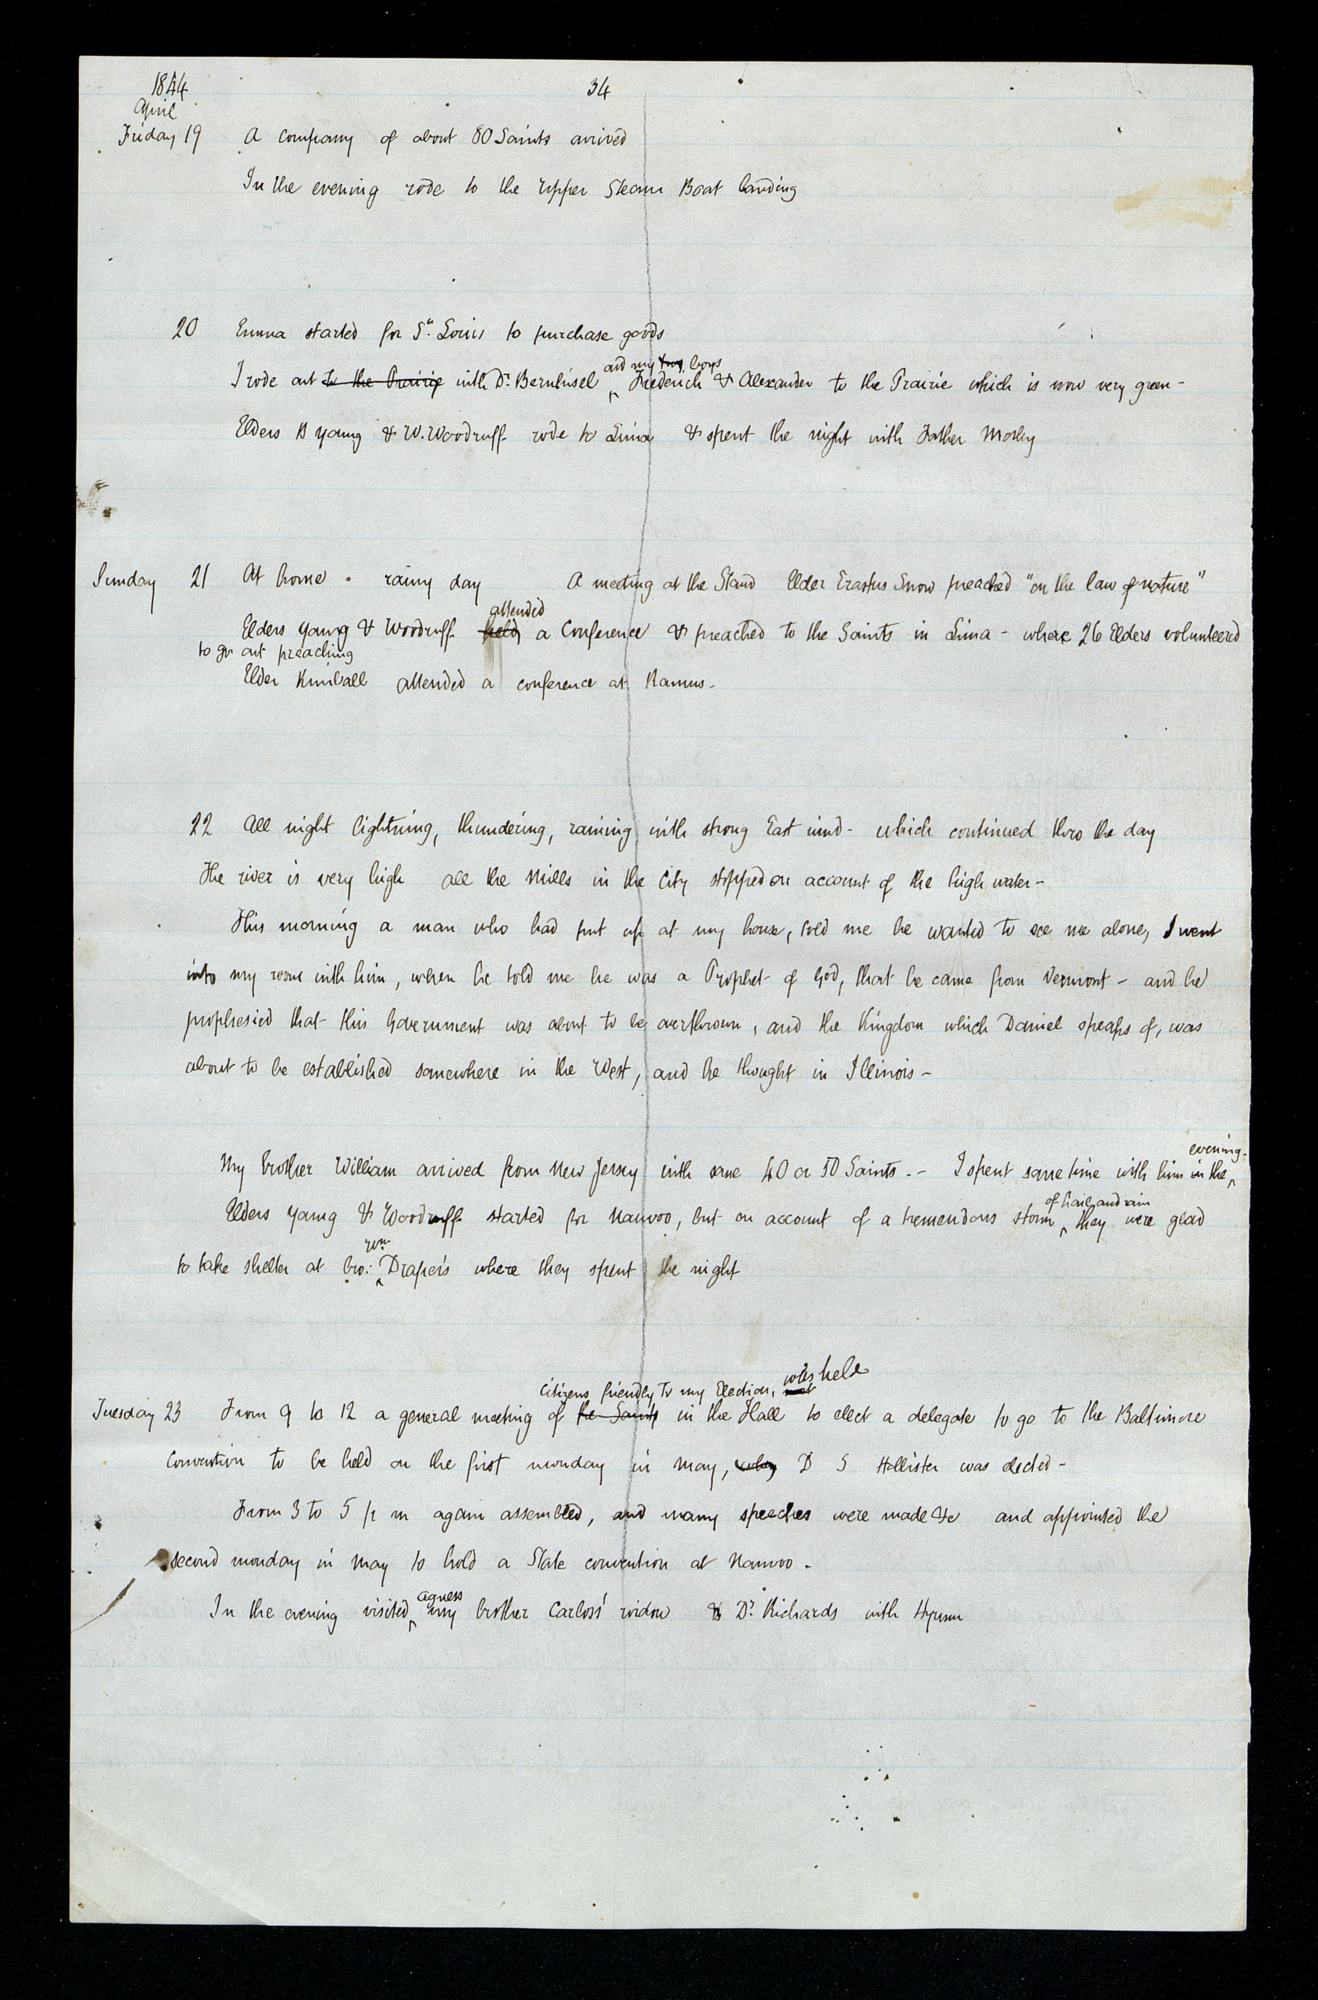 1844
34
April
Friday 19 A company of about 80 Saints arrived
In the evening rode to the upper Steam Boat landing
20 Emma started for St. Louis to purchase goods
and my two boys
I rode out to the Prairie with Dr. Bernhisel Frederick & Alexander to the Prairie which is now very green-
Elders B Young & W. Woodruff rode to Lima & spent the night with Father Morley
Sunday 21 At home . rainy day A meeting at the Stand Elder Erastus Snow preached "on the law of nature"
attended
Elders Young & Woodruff held a Conference & preached to the Saints in Lima - where 26 Elders volunteered
to go out preaching
Elder Kimball attended a conference at Ramus.
22 All night lightning, thundering, raining with strong East wind - which continued thro the day
The river is very high all the Mills in the City stopped on account of the high water-
This morning a man who had put up at my house, told me he wanted to see me alone, I went
into my room with him, when he told me he was a Prophet of God, that he came from Vermont - and he
prophesied that this Government was about to be overthrown, and the Kingdom which Daniel speaks of, was
about to be established somewhere in the West, and he thought in Illinois -
evening-
My brother William arrived from New Jersey with some 40 or 50 Saints.- I spent some time with him in the
of hail and rain
Elders Young & Woodruff started for Nauvoo, but on account of a tremendous storm they were glad
Wm
to take shelter at bro: Draper's where they spent the night
was held
Citizens friendly to my Election, met
Tuesday 23 From 9 to 12 a general meeting of the Saints in the Hall to elect a delegate to go to the Baltimore
Convention to be held on the first monday in May, when D S Hollister was elected-
From 3 to 5 p m again assembled, and many speeches were made &c and appointed the
second monday in May to hold a State convention at Nauvoo.
agness
In the evening visited my brother Carloss' widow & Dr. Richards with Hyrum